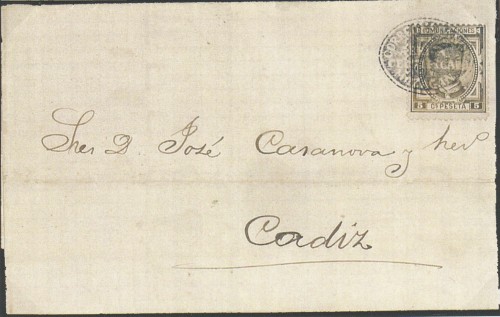 COMUNICACIONES
5 Cs PESETA 5
Sres D. José Casanova y her
Cadiz